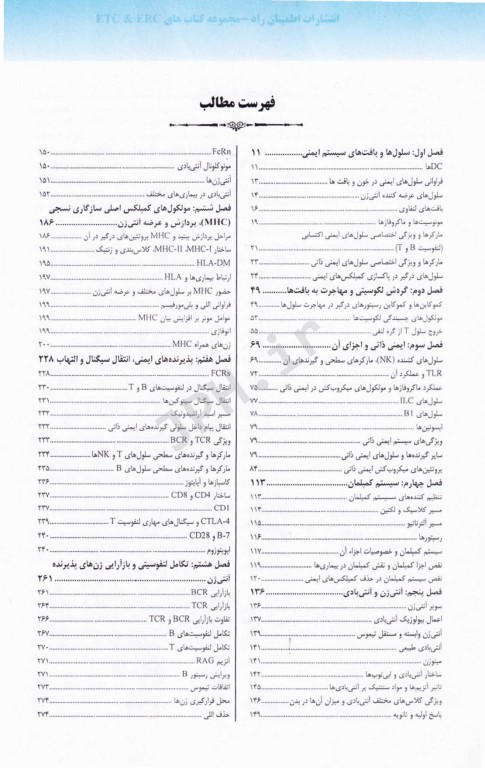 انتشارات اطمینان راد -مجموعه کتاب های ETC & ERC
فهرست مطالب
فصل اول: سلول‌ها و بافت‌های سیستم ایمنی................ ۱۱
DCها ................ ۱۱
فراوانی سلول‌های ایمنی در خون و بافت ها ................ ۱۳
سلول‌های عرضه کننده آنتی‌ژن ................ ۱۴
بافت‌های لنفاوی ................ ۱۶
مونوسیت‌ها و ماکروفاژها ................ ۱۹
مارکرها و ویژگی اختصاصی سلول‌های ایمنی اکتسابی
(لنفوسیت B و T) ................ ۲۱
مارکرها و ویژگی اختصاصی سلول‌های ایمنی ذاتی ................ ۲۳
سلول‌های درگیر در پاکسازی کمپلکس‌های ایمنی ................ ۲۴
فصل دوم: گردش لکوسیتی و مهاجرت به بافت‌ها................ ۴۹
کموکاین‌ها و کموکاین رسپتورهای درگیر در مهاجرت سلول‌ها ................ ۴۹
مولکول‌های چسبندگی لکوسیت‌ها ................ ۵۳
خروج سلول T از گره لنفی ................ ۵۵
فصل سوم: ایمنی ذاتی و اجزای آن ................ ۶۹
سلول‌های کشنده (NK)، مارکرهای سطحی و گیرنده‌های آن ................ ۶۹
TLR و عملکرد آن ................ ۷۲
عملکرد ماکروفاژها و مولکول‌های میکروب‌کش در ایمنی ذاتی ................ ۷۵
سلول‌های ILC ................ ۷۷
سلول‌های B1 ................ ۷۸
اپسونین‌ها ................ ۷۹
ویژگی‌های سیستم ایمنی ذاتی ................ ۷۹
سایر گیرنده‌ها و سلول‌های ایمنی ذاتی ................ ۷۹
پروتئین‌های میکروب‌کش ایمنی ذاتی ................ ۸۴
فصل چهارم: سیستم کمپلمان ................ ۱۱۳
تنظیم کننده‌های سیستم کمپلمان ................ ۱۱۳
مسیر کلاسیک و لکتین ................ ۱۱۴
مسیر آلترناتیو ................ ۱۱۵
رسپتورها ................ ۱۱۶
سیستم کمپلمان و خصوصیات اجزاء آن ................ ۱۱۷
نقص اجزا کمپلمان و نقش کمپلمان در بیماری‌ها ................ ۱۱۹
نقص سیستم کمپلمان در حذف کمپلکس‌های ایمنی ................ ۱۲۰
فصل پنجم: آنتی‌ژن و آنتی‌بادی ................ ۱۳۶
سوپر آنتی‌ژن ................ ۱۳۶
اعمال بیولوژیک آنتی‌بادی ................ ۱۳۷
آنتی‌ژن وابسته و مستقل تیموس ................ ۱۳۹
آنتی‌بادی طبیعی ................ ۱۴۱
میتوژن ................ ۱۴۱
ساختار آنتی‌بادی و اپی‌توپ‌ها ................ ۱۴۲
تاثیر آنزیم‌ها و مواد سنتتیک بر آنتی‌بادی‌ها ................ ۱۴۵
ویژگی کلاس‌های مختلف آنتی‌بادی و میزان آن‌ها در بدن ................ ۱۴۶
پاسخ اولیه و ثانویه ................ ۱۴۹
FcRn ................ ۱۵۰
مونوکلونال آنتی‌بادی ................ ۱۵۰
آنتی‌ژن‌ها ................ ۱۵۱
آنتی‌بادی در بیماری‌های مختلف ................ ۱۵۲
فصل ششم: مولکول‌های کمپلکس اصلی سازگاری نسجی
(MHC)، پردازش و عرضه آنتی‌ژن................ ۱۸۶
مراحل پردازش پپتید و MHC پروتئین‌های درگیر در آن ................ ۱۸۶
ساختار MHC-I، MHC-II، کلاس‌بندی و ژنتیک ................ ۱۹۱
HLA-DM ................ ۱۹۵
ارتباط بیماری‌ها و HLA ................ ۱۹۷
حضور MHC بر سلول‌های مختلف و عرضه آنتی‌ژن ................ ۱۹۷
فراوانی اللی و پلی‌مورفیسم ................ ۱۹۹
عوامل موثر بر افزایش بیان MHC ................ ۱۹۹
اتوفاژی ................ ۱۹۹
ژن‌های همراه MHC ................ ۲۰۰
فصل هفتم: پذیرنده‌های ایمنی، انتقال سیگنال و التهاب ۲۲۸
FCRs ................ ۲۲۸
انتقال سیگنال در لنفوسیت‌های B و T ................ ۲۳۰
انتقال سیگنال سیتوکین‌ها ................ ۲۳۱
مسیر اسید آراشیدونیک ................ ۲۳۲
انتقال پیام داخل سلولی گیرنده‌های ایمنی ذاتی ................ ۲۳۲
ویژگی TCR و BCR ................ ۲۳۳
مارکرها و گیرنده‌های سطحی سلول‌های T و NKها ................ ۲۳۴
مارکرها و گیرنده‌های سطحی سلول‌های B ................ ۲۳۵
کاسپازها و آپاپتوز ................ ۲۳۶
ساختار CD4 و CD8 ................ ۲۳۷
CD1 ................ ۲۳۷
CTLA-4 و سیگنال‌های مهاری لنفوسیت T ................ ۲۳۹
B-7 و CD28 ................ ۲۴۰
ایویتوزوم ................ ۲۴۰
فصل هشتم: تکامل لنفوسیتی و بازآرایی ژن‌های پذیرنده
آنتی‌ژن ................ ۲۶۱
بازآرایی BCR ................ ۲۶۱
بازآرایی TCR ................ ۲۶۴
تفاوت بازآرایی BCR و TCR ................ ۲۶۶
تکامل لنفوسیت‌های B ................ ۲۶۷
تکامل لنفوسیت‌های T ................ ۲۷۰
آنزیم RAG ................ ۲۷۱
ویرایش رسپتور B ................ ۲۷۱
اتفاقات تیموس ................ ۲۷۳
محل قرارگیری ژن‌ها ................ ۲۷۴
حذف اللی ................ ۲۷۴